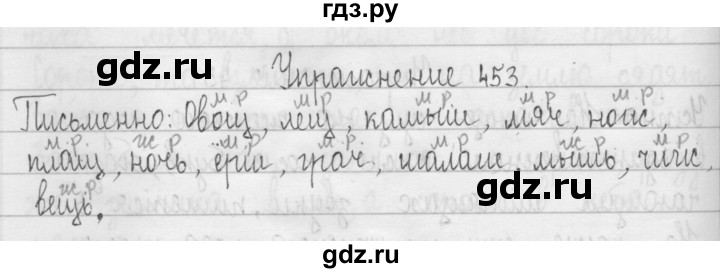 гдз.ру
Упражнение 453.
м.р м.р м.р м.р м.р
Письменно: Овощ, лещ, камыш, мяч, нож,
м.р ж.р м.р м.р м.р ж.р м.р
плащ, ночь, ёрш, грач, шалаш, мышь, чиж,
ж.р
вещь.
gdz.ru
gdz.ru
gdz.ru
gdz.ru